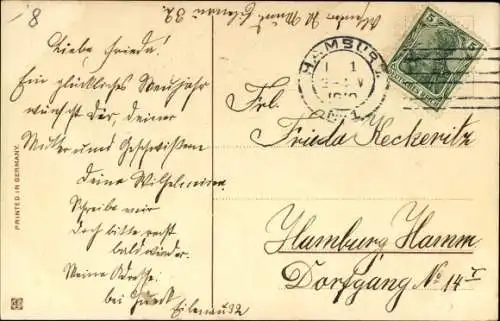 8
Liebe Frieda!
Ein glückliches Neujahr
wünscht Dir, deiner
Mutter und Geschwistern
deine Wilhelmine
Schreibe mir
doch bitte recht
bald wieder.
Meine Adresse:
bei
Eilenau 92
Eilenau 92.
HAMBURG
1 1
5
Deutsches Reich
Frl.
Frieda Keckeritz
Hamburg Hamm
Dorfgang No 14 I
PRINTED IN GERMANY.